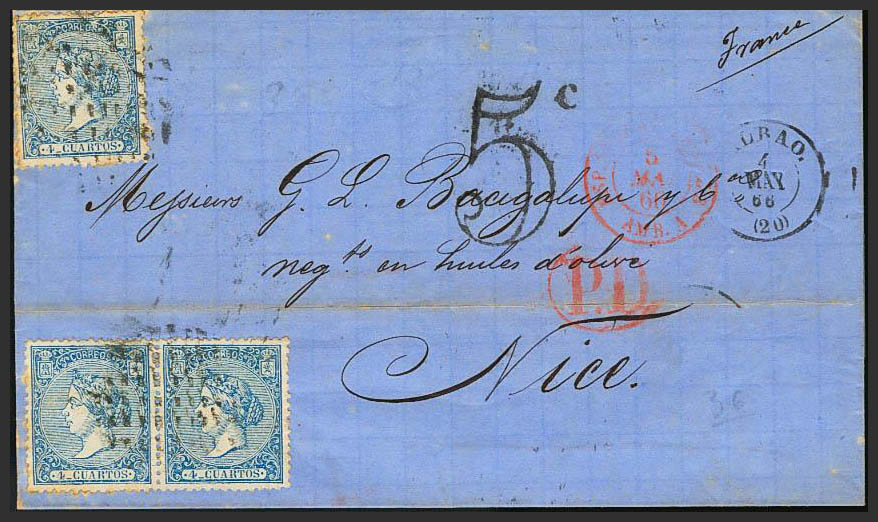 France
CORREOS
4 CUARTOS
5 c
5
MAI
66
AMB. A
BILBAO.
4
MAY
66
(20)
Messieurs G. L. Bacigalupi y
neg.ts en huiles d'olive
P.D.
Nice.
CORREOS
4 CUARTOS
CORREOS
4 CUARTOS
36